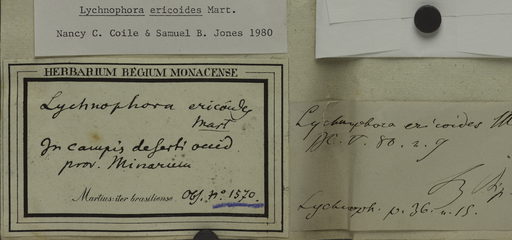 Lychnophora ericoides Mart.
Nancy C. Coile & Samuel B. Jones 1980
HERBARIUM REGIUM MONACENSE
Lychnophora ericoides
Mart
In campis deserti occid.
prov. Minarum
Martius: iter brasiliense Obs. nº 1570.
Lychnophora ericoides M
DC. V. 80. n. 9
Lychnoph. p. 36. n. 15.